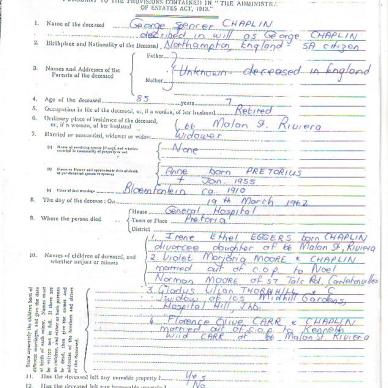 PURSUANT TO THE PROVISIONS CONTAINED IN "THE ADMINISTR.
OF ESTATES ACT, 1913."
1. Name of the deceased George Spencer CHAPLIN
described in will as George CHAPLIN
2. Birthplace and Nationality of the Deceased Northampton, England SA citizen
3. Names and Addresses of the Parents of the deceased
Father
Unknown - deceased in England
Mother
4. Age of the deceased 85 years 7
5. Occupation in life of the deceased, or, if a woman, of her husband Retired
6. Ordinary place of residence of the deceased, or, if a woman, of her husband Malan St. Riviera
7. Married or unmarried, widower or widow Widower
None
Anne born PRETORIUS
+ Jan. 1955
Bloemfontein ca. 1910
8. The day of the decease: On 19th March 1962
9. Where the person died
House General Hospital
Town or Place Pretoria
District
10. Names of children of deceased, and whether majors or minors
1. Irene Ethel EGGERS born CHAPLIN
divorcee daughter at Malan St, Riviera
2. Violet Marjorie MOORE x CHAPLIN
married out of c.o.p. to Noel
Norman MOORE of 57 Rd,
3. Gladys THORNHILL x C
widow of 105 Midhill Gardens,
Hospital Hill, Jhb.
4. Florence Olive CARR x CHAPLIN
married out of c.o.p. to Kenneth
CARR at Malan St Riviera
11. Has the deceased left any movable property? Yes
12. Has the deceased left any immovable property? No